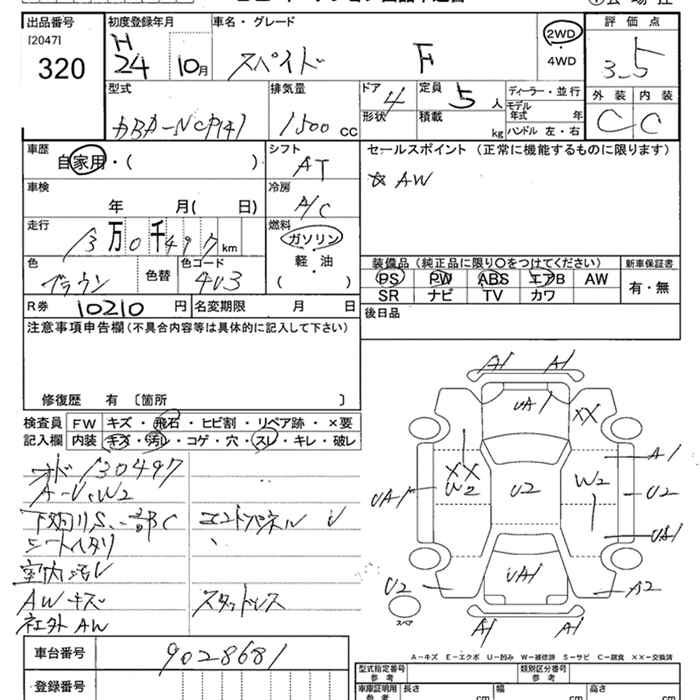 出品番号 初度登録年月 車名・グレード 評価点
[2047] H
320 24 10月 スペイド F 2WD・4WD 3.5
型式 排気量 ドア 4 定員 5人 ディーラー・並行 外装 内装
DBA-NCP141 1500cc 形状 積載 kg モデル年式 年 C C
ハンドル 左・右
車歴 シフト セールスポイント (正常に機能するものに限ります)
自家用・( ) AT ☆ AW
車検 冷房
年 月( 日) A/C
走行 燃料
13万0千497km ガソリン
色 色替 色コード 軽・油 装備品 (純正品に限り〇をつけてください) 新車保証書
ブラウン 4U3 ( ) PS PW ABS エアB AW 有・無
SR ナビ TV カワ
R券 10210円 名変期限 月 日 後日品
注意事項申告欄(不具合内容等は具体的に記入して下さい)
修復歴 有 〔箇所 〕
検査員 FW キズ・飛石・ヒビ割・リペア跡・×要
記入欄 内装 キズ・汚レ・コゲ・穴・スレ・キレ・破レ
A1 A1
UA1 XX
A1
XX
UA1 W2 U2 W2 U2
UA1
U2 A2
A1 A1
スペア
130497
A-U、W2
エンドパネル U
シートヘタリ
室内汚レ
AWキズ スタッドレス
社外AW
A-キズ E-エクボ U-凹み W-補修跡 S-サビ C-腐食 ××-交換済
車台番号 9028681
登録番号
型式指定番号 参考 類別区分番号 参考
車庫証明用 参考 長さ cm 幅 cm 高さ cm